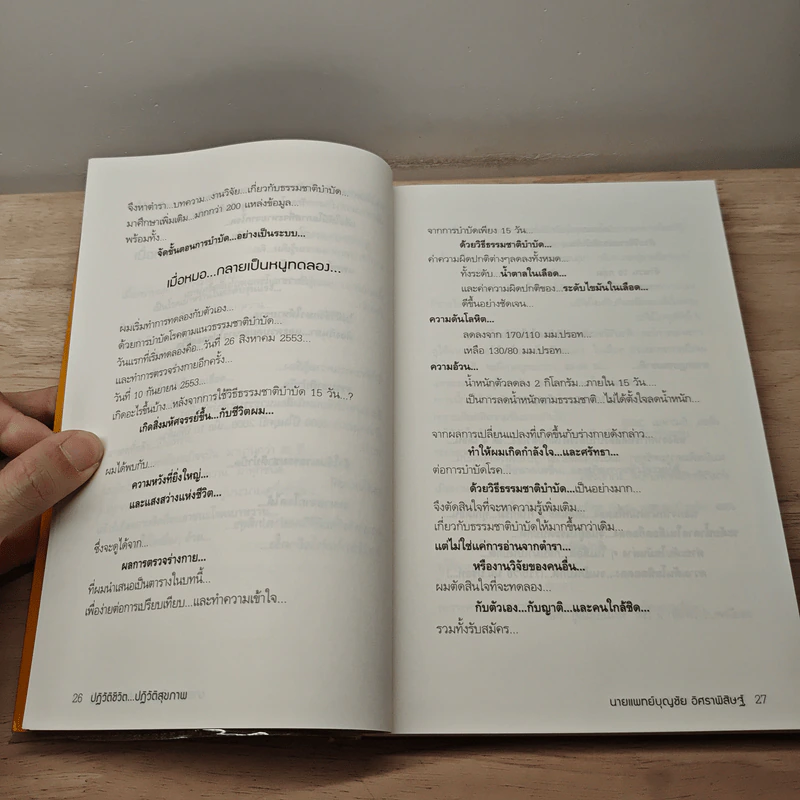 จึงหาตำรา...บทความ...งานวิจัย...เกี่ยวกับธรรมชาติบำบัด...
มาศึกษาเพิ่มเติม...มากกว่า 200 แหล่งข้อมูล...
พร้อมทั้ง...
จัดขั้นตอนการบำบัด...อย่างเป็นระบบ...
เมื่อหมอ...กลายเป็นหนูทดลอง...
ผมเริ่มทำการทดลองกับตัวเอง...
ด้วยการบำบัดโรคตามแนวธรรมชาติบำบัด...
วันแรกที่เริ่มทดลองคือ...วันที่ 26 สิงหาคม 2553...
และทำการตรวจร่างกายอีกครั้ง...
วันที่ 10 กันยายน 2553...
เกิดอะไรขึ้นบ้าง...หลังจากการใช้วิธีธรรมชาติบำบัด 15 วัน...?
เกิดสิ่งมหัศจรรย์ขึ้น...กับชีวิตผม...
ผมได้พบกับ...
ความหวังที่ยิ่งใหญ่...
และแสงสว่างแห่งชีวิต...
ซึ่งจะดูได้จาก...
ผลการตรวจร่างกาย...
ที่ผมนำเสนอเป็นตารางในบทนี้...
เพื่อง่ายต่อการเปรียบเทียบ...และทำความเข้าใจ...
26 ปฏิวัติชีวิต...ปฏิวัติสุขภาพ
จากการบำบัดเพียง 15 วัน...
ด้วยวิธีธรรมชาติบำบัด...
ค่าความผิดปกติต่างๆลดลงทั้งหมด...
ทั้งระดับ...น้ำตาลในเลือด...
และค่าความผิดปกติของ...ระดับไขมันในเลือด...
ดีขึ้นอย่างชัดเจน...
ความดันโลหิต...
ลดลงจาก 170/110 มม.ปรอท...
เหลือ 130/80 มม.ปรอท...
ความอ้วน...
น้ำหนักตัวลดลง 2 กิโลกรัม...ภายใน 15 วัน....
เป็นการลดน้ำหนักตามธรรมชาติ...ไม่ได้ตั้งใจลดน้ำหนัก...
จากผลการเปลี่ยนแปลงที่เกิดขึ้นกับร่างกายดังกล่าว...
ทำให้ผมเกิดกำลังใจ...และศรัทธา...
ต่อการบำบัดโรค...
ด้วยวิธีธรรมชาติบำบัด...เป็นอย่างมาก...
จึงตัดสินใจที่จะหาความรู้เพิ่มเติม...
เกี่ยวกับธรรมชาติบำบัดให้มากขึ้นกว่าเดิม...
แต่ไม่ใช่แค่การอ่านจากตำรา...
หรืองานวิจัยของคนอื่น...
ผมตัดสินใจที่จะทดลอง...
กับตัวเอง...กับญาติ...และคนใกล้ชิด...
รวมทั้งรับสมัคร...
นายแพทย์บุญชัย อิศราพิสิษฐ์ 27